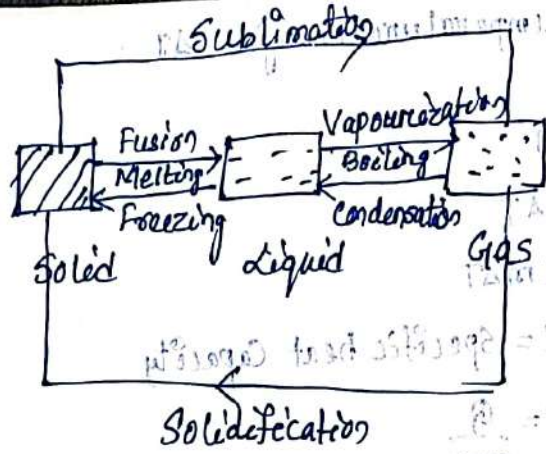 Sublimation
Fusion
Melting
Freezing
Vapourization
Boiling
Condensation
Solid
Liquid
Gas
Solidification